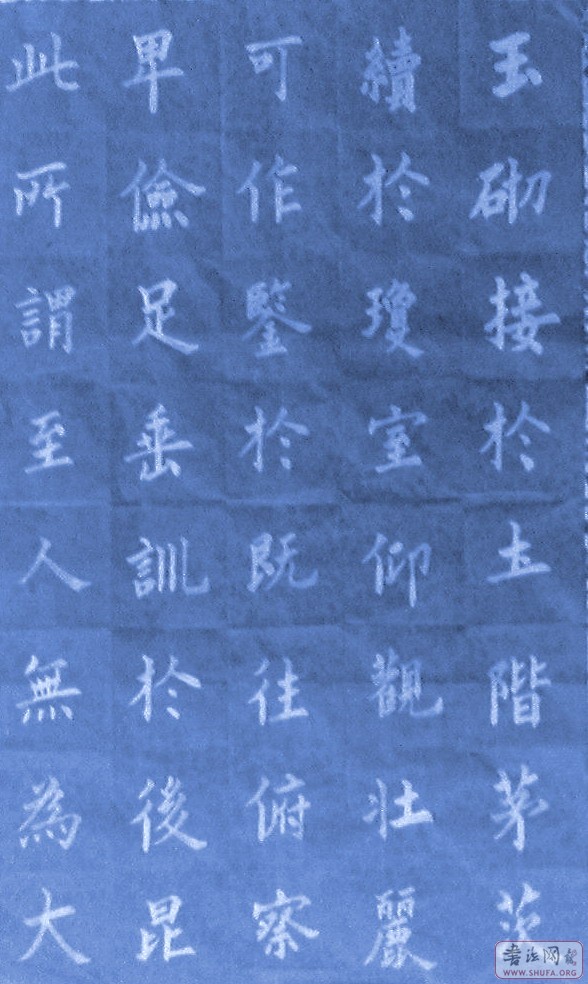 玉砌接於土階茅茨
續於瓊室仰觀壯麗
可作鑒於既往俯察
卑儉足垂訓於後昆
此所謂至人無為大
书法网
WWW.SHUFA.ORG